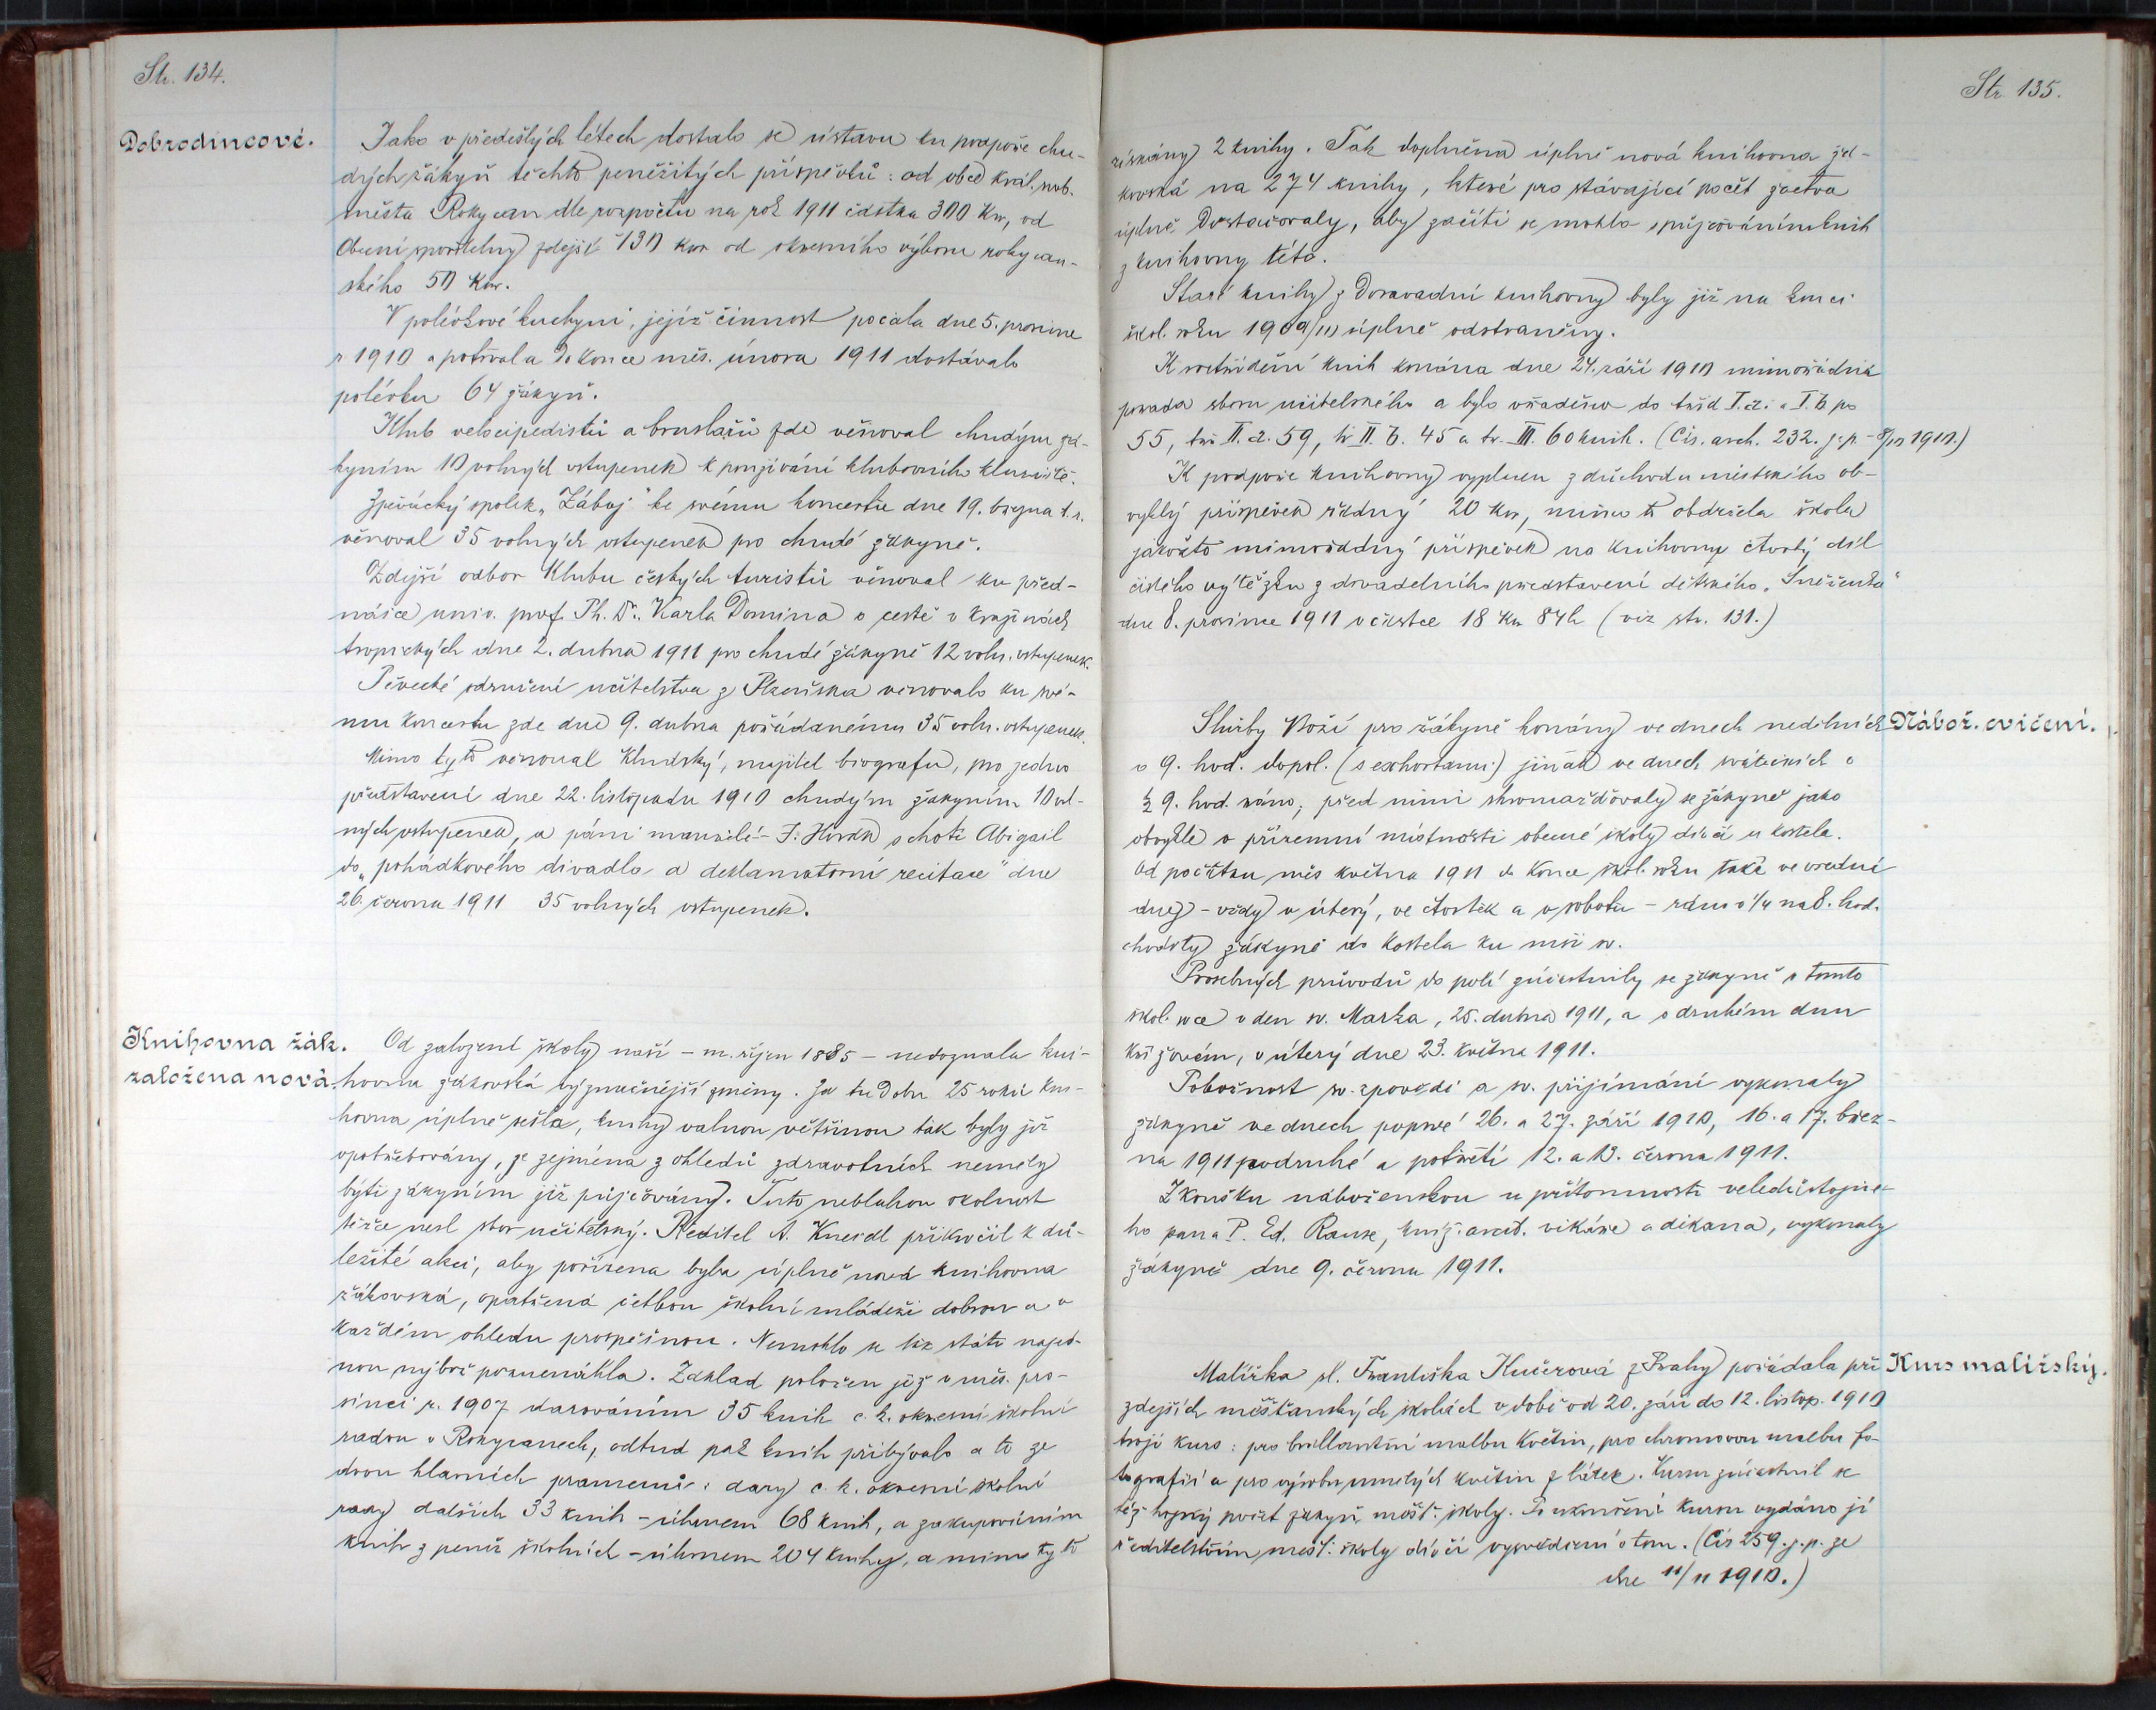 Str. 134.
Dobrodincové.
Jako v předešlých létech dostalo se ústavu ku podpoře chu-
dých žákyň těchto peněžitých příspěvků: od obce král. svob.
města Rokycan dle rozpočtu na rok 1911 částka 300 Kor, od
Obecní spořitelny zdejší 130 kor od okresního výboru rokycan-
ského 50 Kor.
V polévkové kuchyni, jejíž činnost počala dne 5. prosince
r. 1910 a potrvala do konce měs. února 1911 dostávalo
polévku 64 žákyň.
Klub velocipedistů a bruslařů zde věnoval chudým žá-
kyním 10 volných vstupenek k používání klubovního kluziště.
Zpěvácký spolek „Záboj" ke svému koncertu dne 19. března t. r.
věnoval 35 volných vstupenek pro chudé žákyně.
Zdejší odbor Klubu českých turistů věnoval ku před-
nášce univ. prof. Ph. Dr. Karla Domina o cestě v krajinách
tropických dne 2. dubna 1911 pro chudé žákyně 12 voln. vstupenek.
Pěvecké sdružení učitelstva z Plzeňska věnovalo ku své-
mu koncertu zde dne 9. dubna pořádanému 35 voln. vstupenek.
Mimo tyto věnoval Kludský, majitel biografu, pro jedno
představení dne 22. listopadu 1910 chudým žákyním 10 vol-
ných vstupenek, a páni manželé J. Horák s chotí Abigail
do „pohádkového divadla a deklamatorní recitace" dne
26. června 1911 35 volných vstupenek.
Knihovna žák.
založena nová.
Od založení školy naší – m. říjen 1885 – nedoznala kni-
hovna žákovská význačnější změny. Za tu dobu 25 roků kni-
hovna úplně sešla, knihy valnou většinou tak byly již
opotřebovány, že zejména z ohledů zdravotních neměly
býti žákyním již půjčovány. Tuto neblahou okolnost
těžce nesl sbor učitelský. Ředitel A. Kneidl přikročil k dů-
ležité akci, aby pořízena byla úplně nová knihovna
žákovská, opatřená četbou školní mládeži dobrou a v
každém ohledu prospěšnou. Nemohlo se tak státi najed-
nou nýbrž poznenáhla. Základ položen již v měs. pro-
sinci r. 1907 darováním 35 knih c. k. okresní školní
radou v Rokycanech, odtud pak knih přibývalo a to ze
dvou hlavních pramenů: dary c. k. okresní školní
rady dalších 33 knih – úhrnem 68 knih, a zakupováním
knih z peněz školních – úhrnem 204 knihy, a mimo ty to
Str. 135.
získány 2 knihy. Tak doplněna úplně nová knihovna žá-
kovská na 274 knihy, které pro stávající počet žactva
úplně dostačovaly, aby začíti se mohlo s půjčováním knih
z knihovny této.
Staré knihy z dosavadní knihovny byly již na konci
škol. roku 1909/10 úplně odstraněny.
K roztřídění knih konána dne 24. září 1910 mimořádná
porada sboru učitelského a bylo vřaděno do tříd I. a. a I. b. po
55, tř. II. a. 59, tř. II. b. 45 a tř. III. 60 knih. (Čís. arch. 232. j. p. – 8/10 1910.)
K podpoře knihovny vyplacen z důchodu městského ob-
vyklý příspěvek řádný 20 Kor, mimo to obdržela škola
jakožto mimořádný příspěvek na knihovnu čtvrtý díl
čistého výtěžku z divadelního představení dětského „Sněženka"
dne 8. prosince 1911 v částce 18 Kor 84 h (viz str. 131.)
Nábož. cvičení.
Služby Boží pro žákyně konány ve dnech nedělních
o 9. hod. dopol. (s exhortami) jinak ve dnech svátečních o
½ 9. hod. ráno, před nimi shromažďovaly se žákyně jako
obvykle v přízemní místnosti obecné školy dívčí u kostela.
Od počátku měs května 1911 do konce škol. roku také ve všední
dny – vždy v úterý, ve čtvrtek a v sobotu – ráno o 1/4 na 8. hod.
chodily žákyně do kostela ku mši sv.
Prosebných průvodů do polí zúčastnily se žákyně v tomto
škol. roce v den sv. Marka, 25. dubna 1911, a v druhém dnu
křížovém, v úterý dne 23. května 1911.
Pobožnost sv. zpovědi a sv. přijímání vykonaly
žákyně ve dnech poprvé 26. a 27. září 1910, 16. a 17. břez-
na 1911 podruhé a potřetí 12. a 13. června 1911.
Zkoušku náboženskou u přítomnosti veledůstojné-
ho pana P. Ed. Rause, kníž. arcib. vikáře a děkana, vykonaly
žákyně dne 9. června 1911.
Kurs malířský.
Malířka sl. Františka Kučerová z Prahy pořádala při
zdejších měšťanských školách v době od 20. září do 12. listop. 1910
trojí kurs: pro brillantní malbu květin, pro chromovou malbu fo-
tografií a pro výrobu umělých květin z látek. Kursu zúčastnil se
též hojný počet žákyň měšť. školy. Po ukončení kursu vydáno jí
ředitelstvím měšť. školy dívčí vysvědčení o tom. (Čís 259. j. p. ze
dne 11/11 1910.)